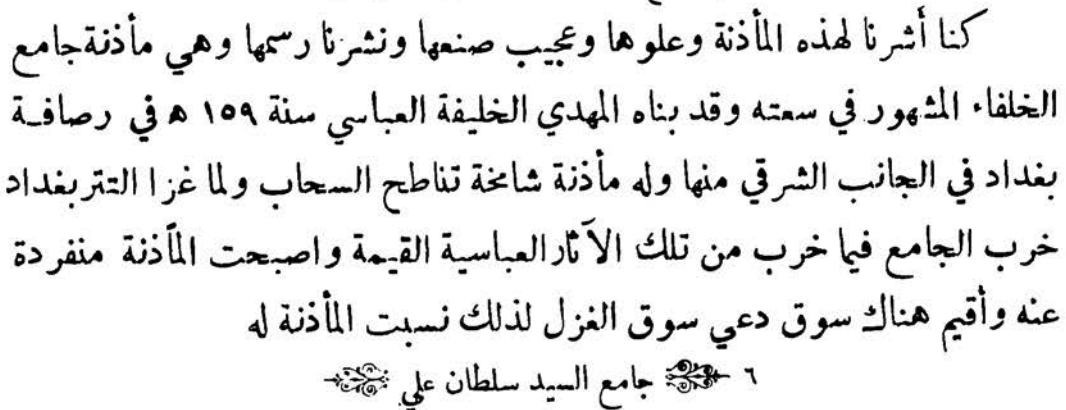 كنا أشرنا لهذه المأذنة وعلوها وعجيب صنعها ونشرنا رسمها وهي مأذنة جامع
الخلفاء المشهور في سعته وقد بناه المهدي الخليفة العباسي سنة ١٥٩ ه في رصافـة
بغداد في الجانب الشرقي منها وله مأذنة شامخة تناطح السحاب ولما غزا التتر بغداد
خرب الجامع فيما خرب من تلك الآثار العباسية القيمة واصبحت المأذنة منفردة
عنه وأقيم هناك سوق دعي سوق الغزل لذلك نسبت المأذنة له
٦ جامع السيد سلطان علي